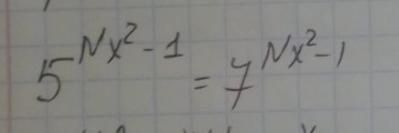 5^{Nx²-1} = 7^{Nx²-1}